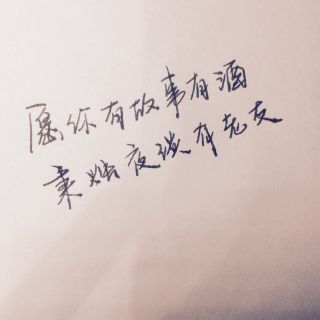 愿你有故事有酒
秉烛夜谈有老友